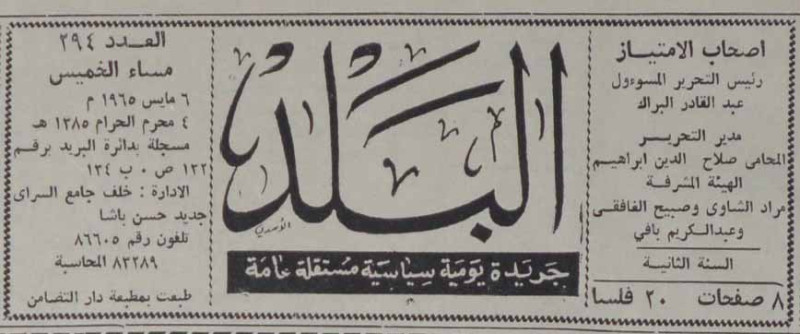 اصحاب الامتياز
رئيس التحرير المسوءول
عبد القادر البراك
مدير التحرير
المحامى صلاح الدين ابراهيم
الهيئة المشرفة
مراد الشاوى وصبيح الغافقى
وعبدالكريم بافي
السنة الثانية
٨ صفحات ٢٠ فلسا
البلد
الأسدي
جريدة يومية سياسية مستقلة عامة
العدد ٢٩٤
مساء الخميس
٦ مايس ١٩٦٥ م
٤ محرم الحرام ١٣٨٥ هـ
مسجلة بدائرة البريد برقم
١٢٢ ص ٠ ب ١٣٤
الادارة : خلف جامع السراى
جديد حسن باشا
تلفون رقم ٨٦٦٠٥
٨٣٢٨٩ المحاسبة
طبعت بمطبعة دار التضامن